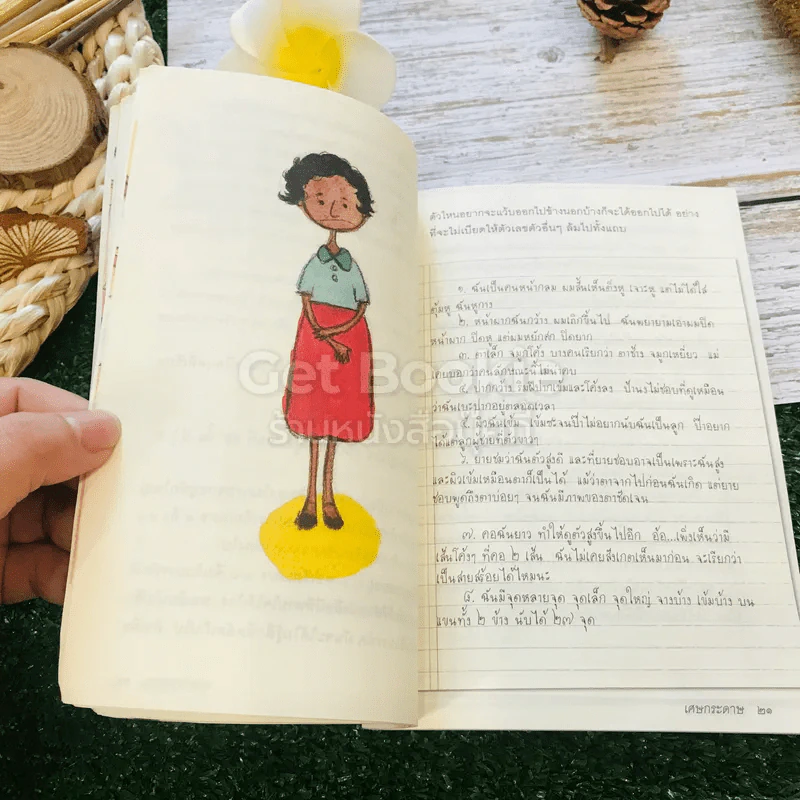 ตัวไหนอยากจะแว้บออกไปข้างนอกบ้างก็จะได้ออกไปได้ อย่าง
ที่จะไม่เบียดให้ตัวเลขตัวอื่นๆ ล้มไปทั้งแถบ
๑. ฉันเป็นคนหน้ากลม ผมสั้นเห็นติ่งหู เจาะหู แต่ไม่ได้ใส่
ตุ้มหู ฉันหูกาง
๒. หน้าผากฉันกว้าง ผมเถิกขึ้นไป ฉันพยายามเอาผมปิด
หน้าผาก ปิดหู แต่ผมหยักศก ปิดยาก
๓. ตาเล็ก จมูกโค้ง บางคนเรียกว่า ตาช้าง จมูกเหยี่ยว แม่
เคยบอกว่าคนลักษณะนี้ไม่น่าคบ
ปากกว้าง ริมฝีปากเข้มและโค้งลง ป้านงไม่ชอบที่ดูเหมือน
ว่าฉันเบะปากอยู่ตลอดเวลา
๕. ผิวฉันเข้ม เข้มซะจนป๊าไม่อยากนับฉันเป็นลูก ป๊าอยาก
ได้แต่ลูกผู้ชายที่ตัวขาวๆ
๖. ยายชมว่าฉันตัวสูงดี และที่ยายชอบอาจเป็นเพราะฉันสูง
และผิวเข้มเหมือนตาก็เป็นได้ แม้ว่าตาจากไปก่อนฉันเกิด แต่ยาย
ชอบพูดถึงตาบ่อยๆ จนฉันมีภาพของตาชัดเจน
๗. คอฉันยาว ทำให้ดูตัวสูงขึ้นไปอีก อ้อ...เพิ่งเห็นว่ามี
เส้นโค้งๆ ที่คอ ๒ เส้น ฉันไม่เคยสังเกตเห็นมาก่อน จะเรียกว่า
เป็นสายสร้อยได้ไหมนะ
๘. ฉันมีจุดหลายจุด จุดเล็ก จุดใหญ่ จางบ้าง เข้มบ้าง บน
แขนทั้ง ๒ ข้าง นับได้ ๒๗ จุด
เศษกระดาษ ๒๑